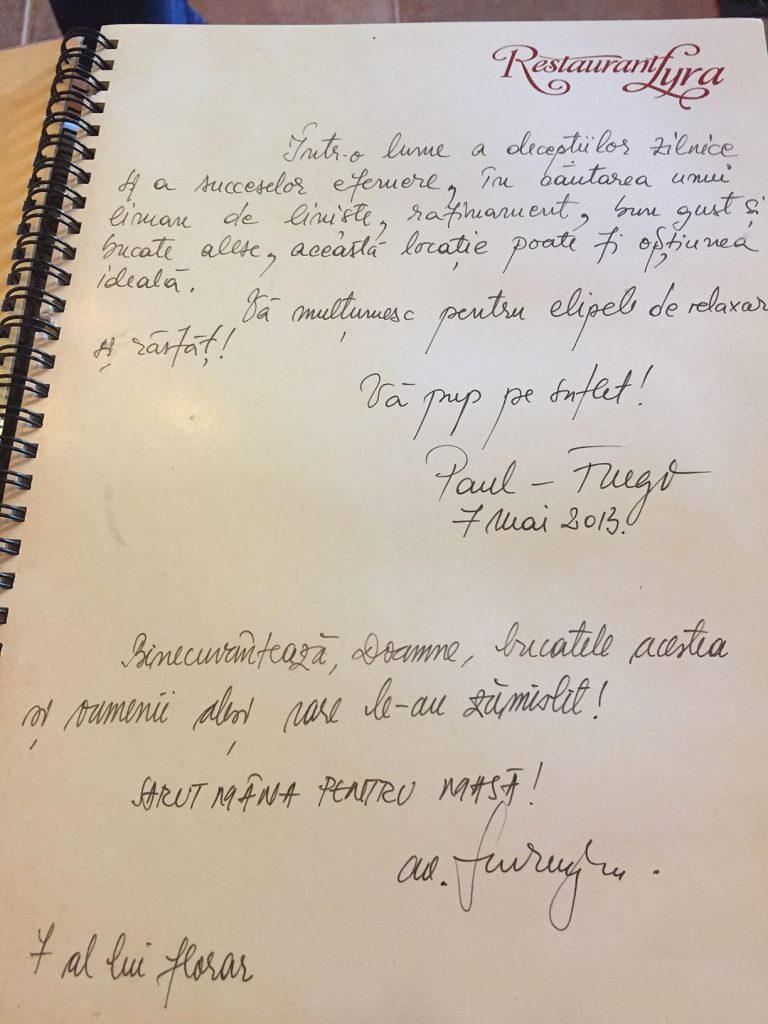 Restaurant Lyra
Într-o lume a decepțiilor zilnice
și a succeselor efemere, în căutarea unui
liman de liniște, rafinament, bun gust și
bucate alese, această locație poate fi opțiunea
ideală.
Vă mulțumesc pentru clipele de relaxar
și răsfăț!
Vă pup pe suflet!
Paul - Fuego
7 Mai 2013.
Binecuvântează, Doamne, bucatele acestea
și oamenii aleși care le-au zămislit!
SĂRUT MÂNA PENTRU MASĂ!
7 al lui florar